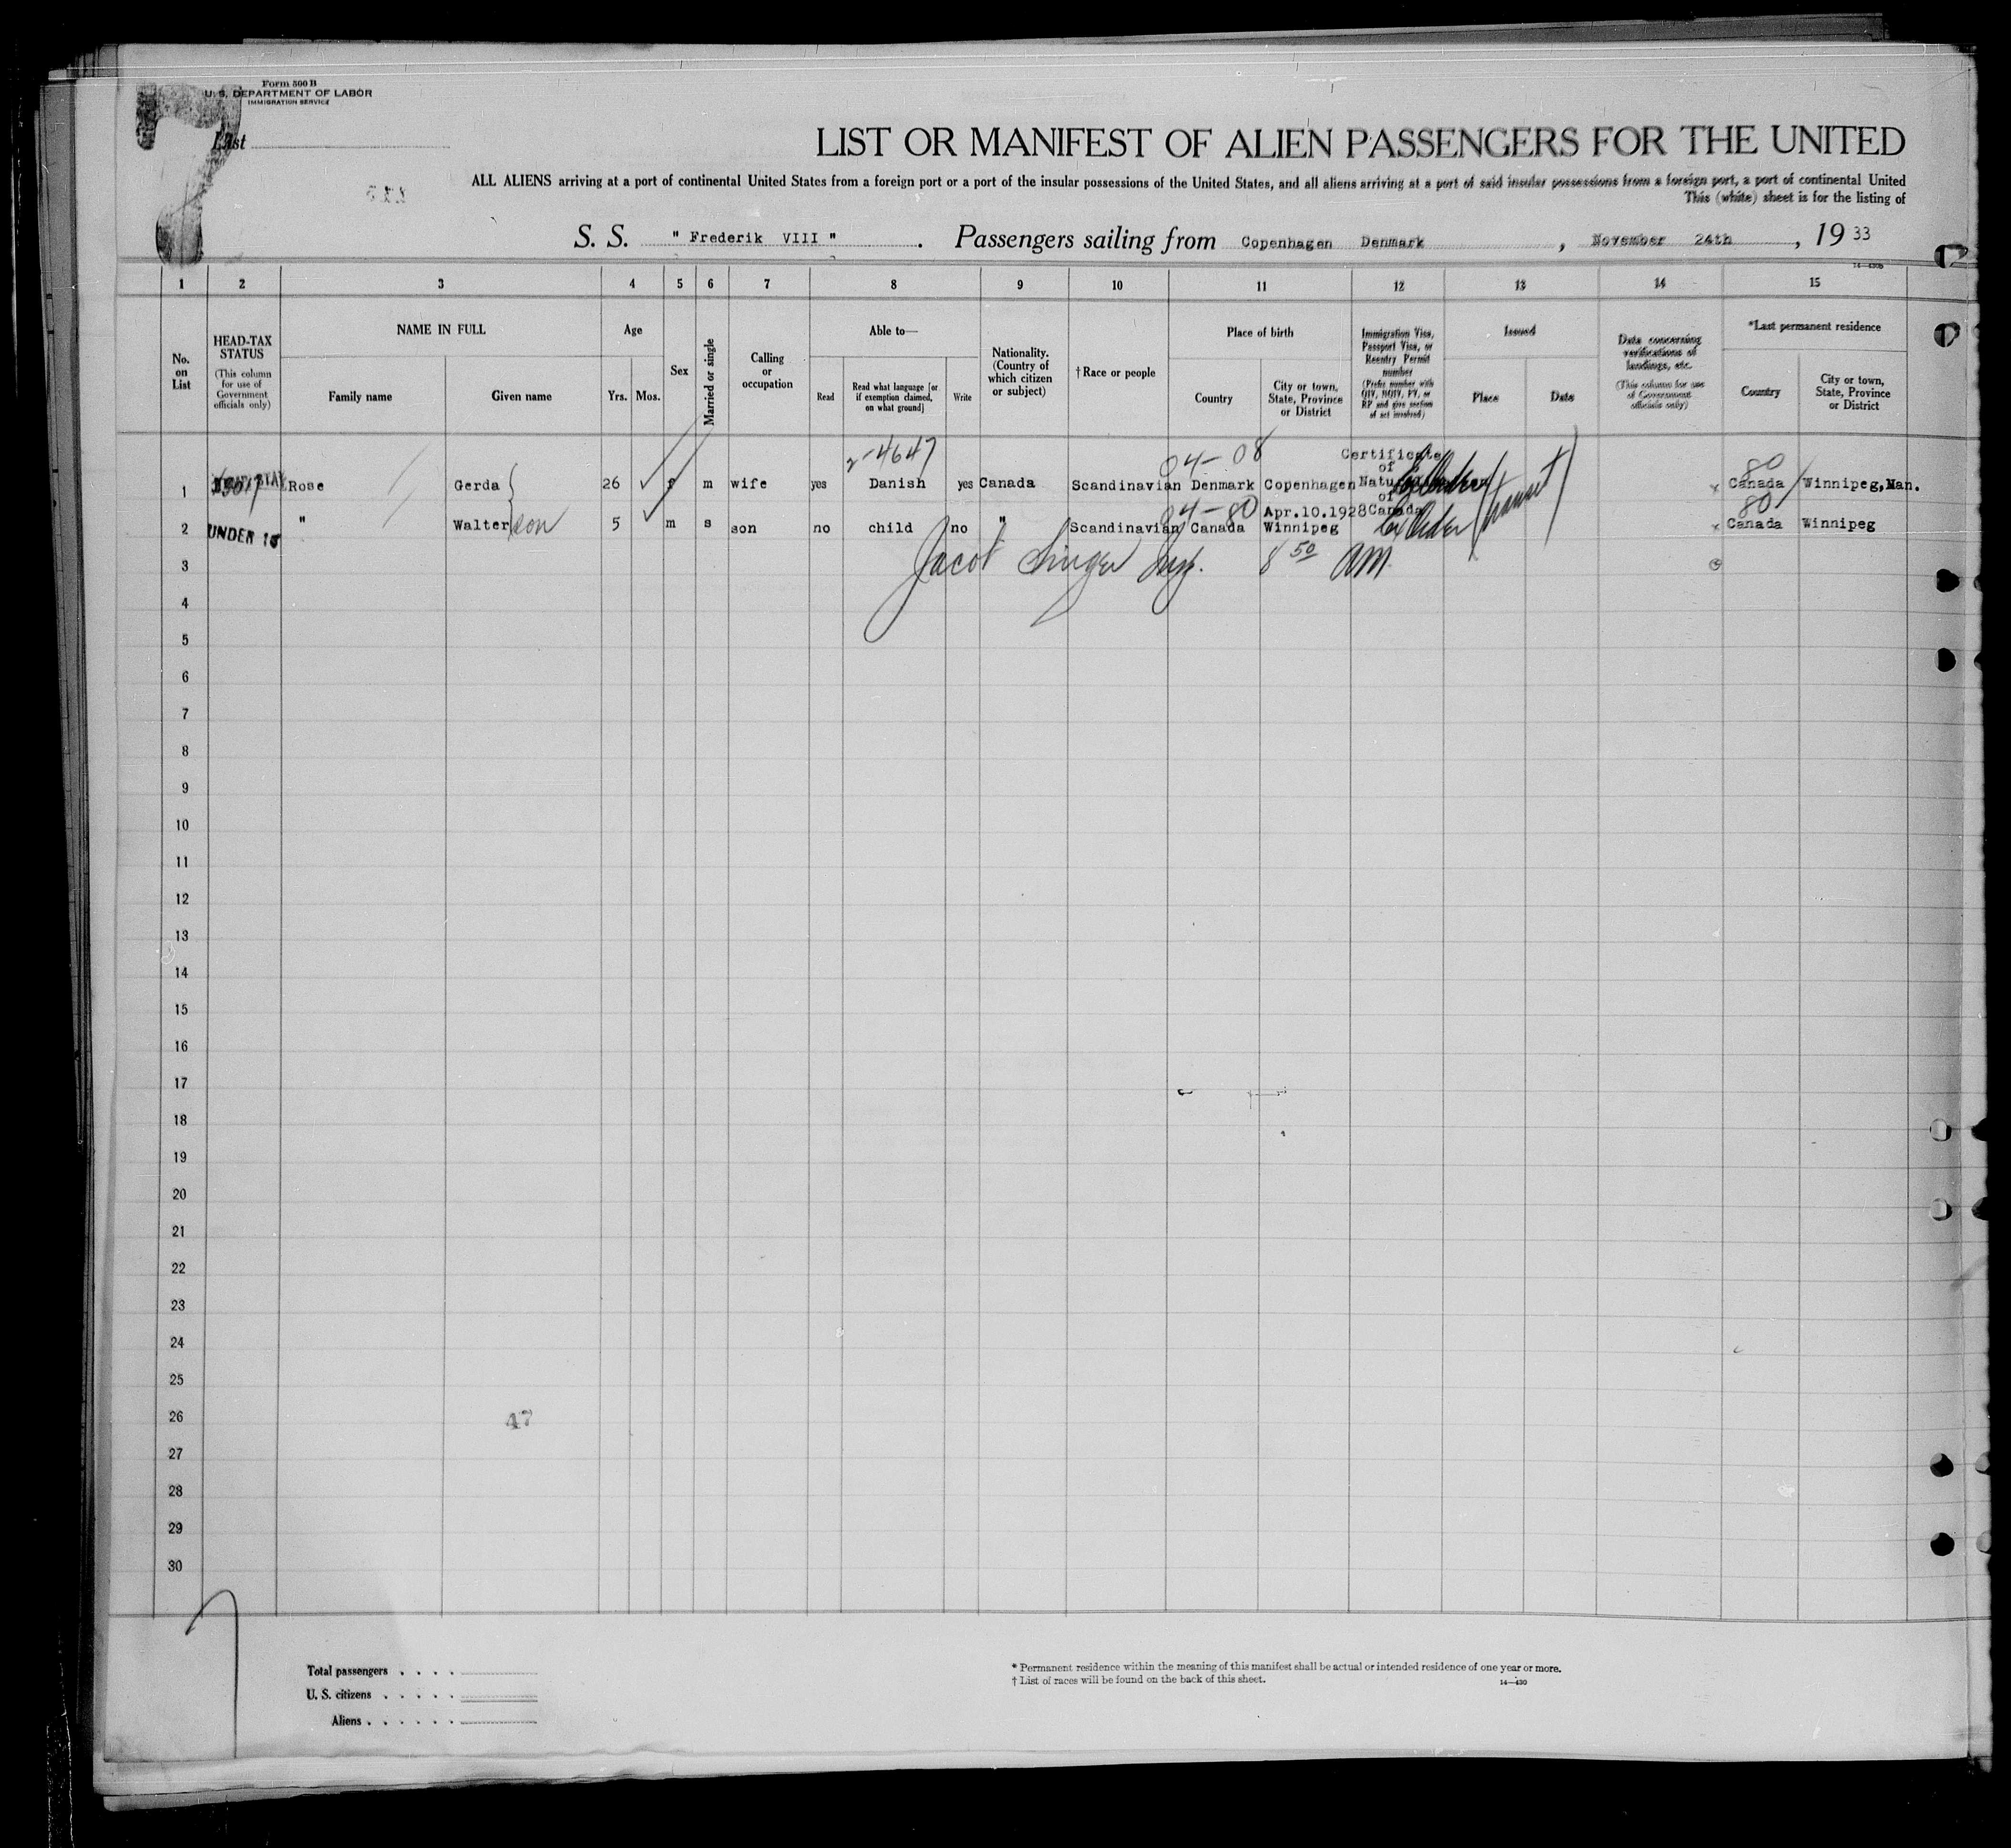 Form 500 B
U. S. DEPARTMENT OF LABOR
IMMIGRATION SERVICE
List
LIST OR MANIFEST OF ALIEN PASSENGERS FOR THE UNITED
ALL ALIENS arriving at a port of continental United States from a foreign port or a port of the insular possessions of the United States, and all aliens arriving at a port of said insular possessions from a foreign port, a port of continental United
This (white) sheet is for the listing of
S. S. " Frederik VIII " . Passengers sailing from Copenhagen Denmark , November 24th , 19 33
1 2 3 4 5 6 7 8 9 10 11 12 13 14 15
No. on List
HEAD-TAX STATUS
(This column for use of Government officials only)
NAME IN FULL
Family name
Given name
Age
Yrs. Mos.
Sex
Married or single
Calling or occupation
Able to—
Read
Read what language [or if exemption claimed, on what ground]
Write
Nationality. (Country of which citizen or subject)
†Race or people
Place of birth
Country
City or town, State, Province or District
Immigration Visa, Passport Visa, or Reentry Permit number
(Prefix number with QIV, NQIV, PV, or RP and give section of act involved)
Issued
Place
Date
Data concerning verifications of landings, etc.
(This column for use of Government officials only)
*Last permanent residence
Country
City or town, State, Province or District
2-4647 04-08 Certificate of 80
1 Rose Gerda 26 f m wife yes Danish yes Canada Scandinavian Denmark Copenhagen Canada Winnipeg,Man.
04-80 Apr.10.1928 of Canada transit 80
2 UNDER 16 " Walter son 5 m s son no child no " Scandinavian Canada Winnipeg Canada Winnipeg
3 Jacob Singer Insp. 8 50 AM
4
5
6
7
8
9
10
11
12
13
14
15
16
17
18
19
20
21
22
23
24
25
26 47
27
28
29
30
Total passengers . . . .
U. S. citizens . . . . .
Aliens . . . . . .
* Permanent residence within the meaning of this manifest shall be actual or intended residence of one year or more.
† List of races will be found on the back of this sheet.
14—430